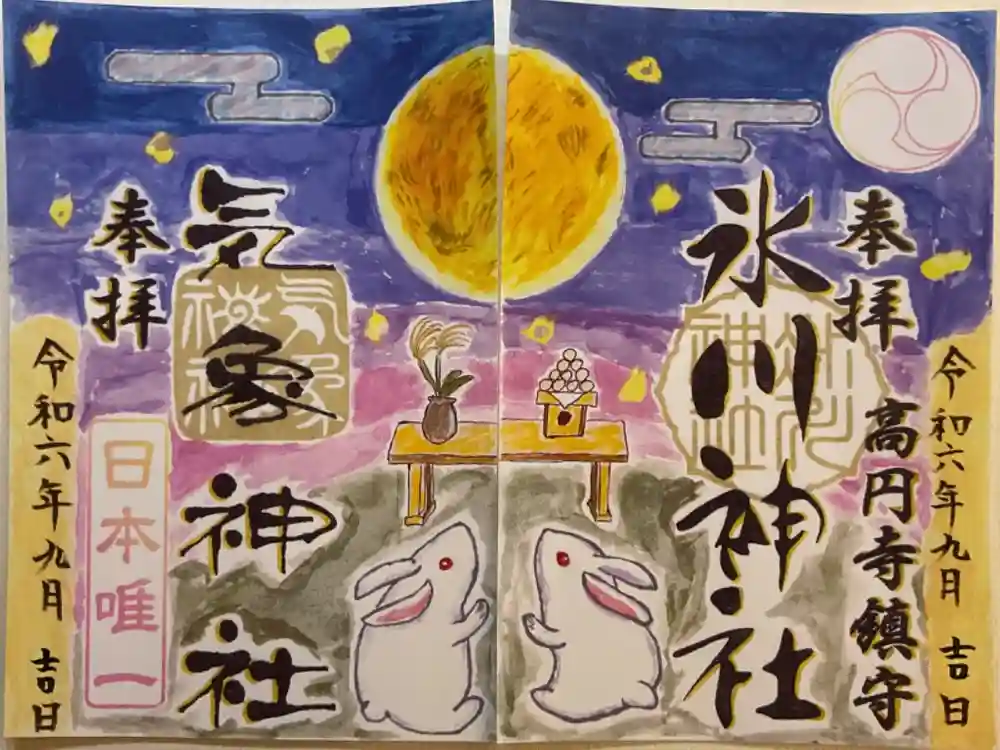 奉拝
氷川神社
高円寺鎮守
令和六年九月 吉日
奉拝
気象神社
日本唯一
令和六年九月 吉日